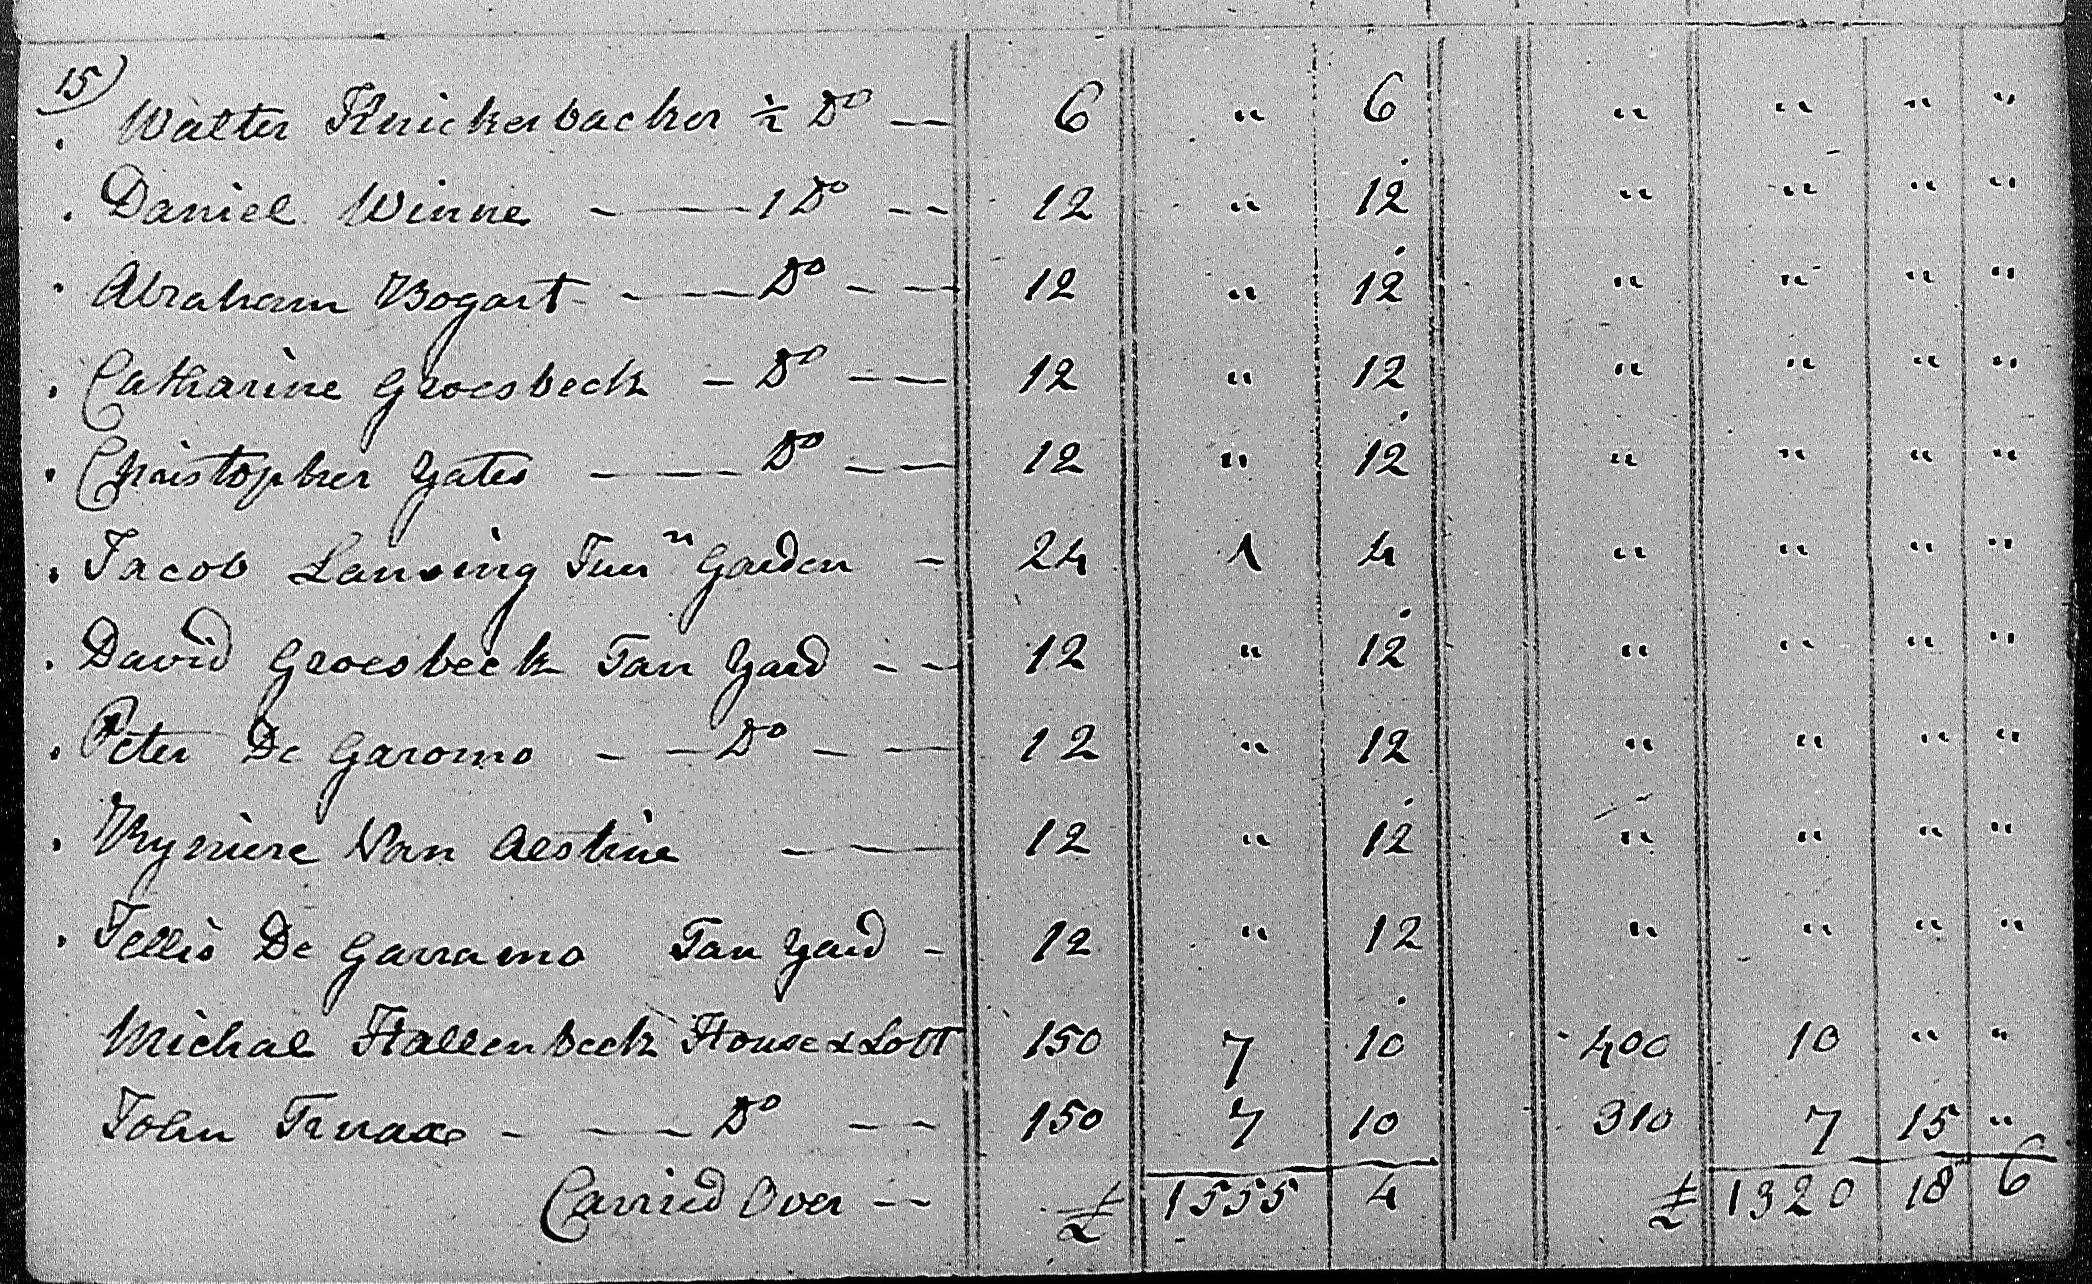 15)
Walter Knickerbacker ½ Do -- 6 " 6 " " " "
Daniel Winne - --- 1 Do -- 12 " 12 " " " "
Abraham Bogart - --- Do -- 12 " 12 " " " "
Catharine Groesbeck - Do -- 12 " 12 " " " "
Christopher Yates --- Do -- 12 " 12 " " " "
Jacob Lansing Junn Garden - 24 1 4 " " " "
David Groesbeck Tan Yard -- 12 " 12 " " " "
Peter De Garomo -- Do -- 12 " 12 " " " "
Van Aestine --- 12 " 12 " " " "
Jellis De Garramo Tan Yard - 12 " 12 " " " "
Michal Hallenbeck House & Lott 150 7 10 400 10 " "
John Truax - --- Do -- 150 7 10 310 7 15 "
Carried Over -- £ 1555 4 £ 1320 18 6